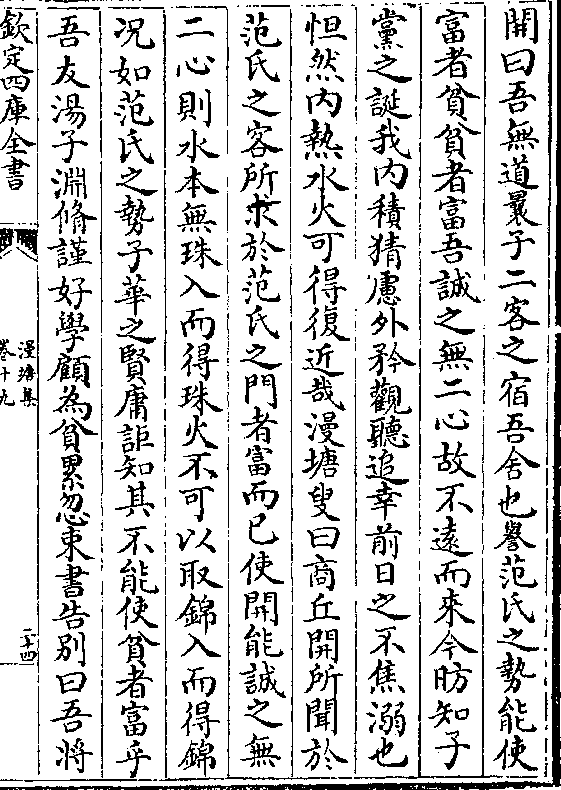 開曰吾無道曩子二客之宿吾舍也譽范氏之勢能使
富者貧貧者富吾誠之無二心故不遠而來今昉知子
黨之誕我内積猜慮外矜觀聽追幸前日之不焦溺也
怛然内熱水火可得復近哉漫塘叟曰商丘開所聞於
范氏之客所求於范氏之門者富而已使開能誠之無
二心則水本無珠入而得珠火不可以取錦入而得錦
况如范氏之勢子華之賢庸詎知其不能使貧者富乎
吾友湯子淵脩謹好學顧為貧累忽束書告别曰吾將
欽定四庫全書
漫塘集
卷十九
二十四